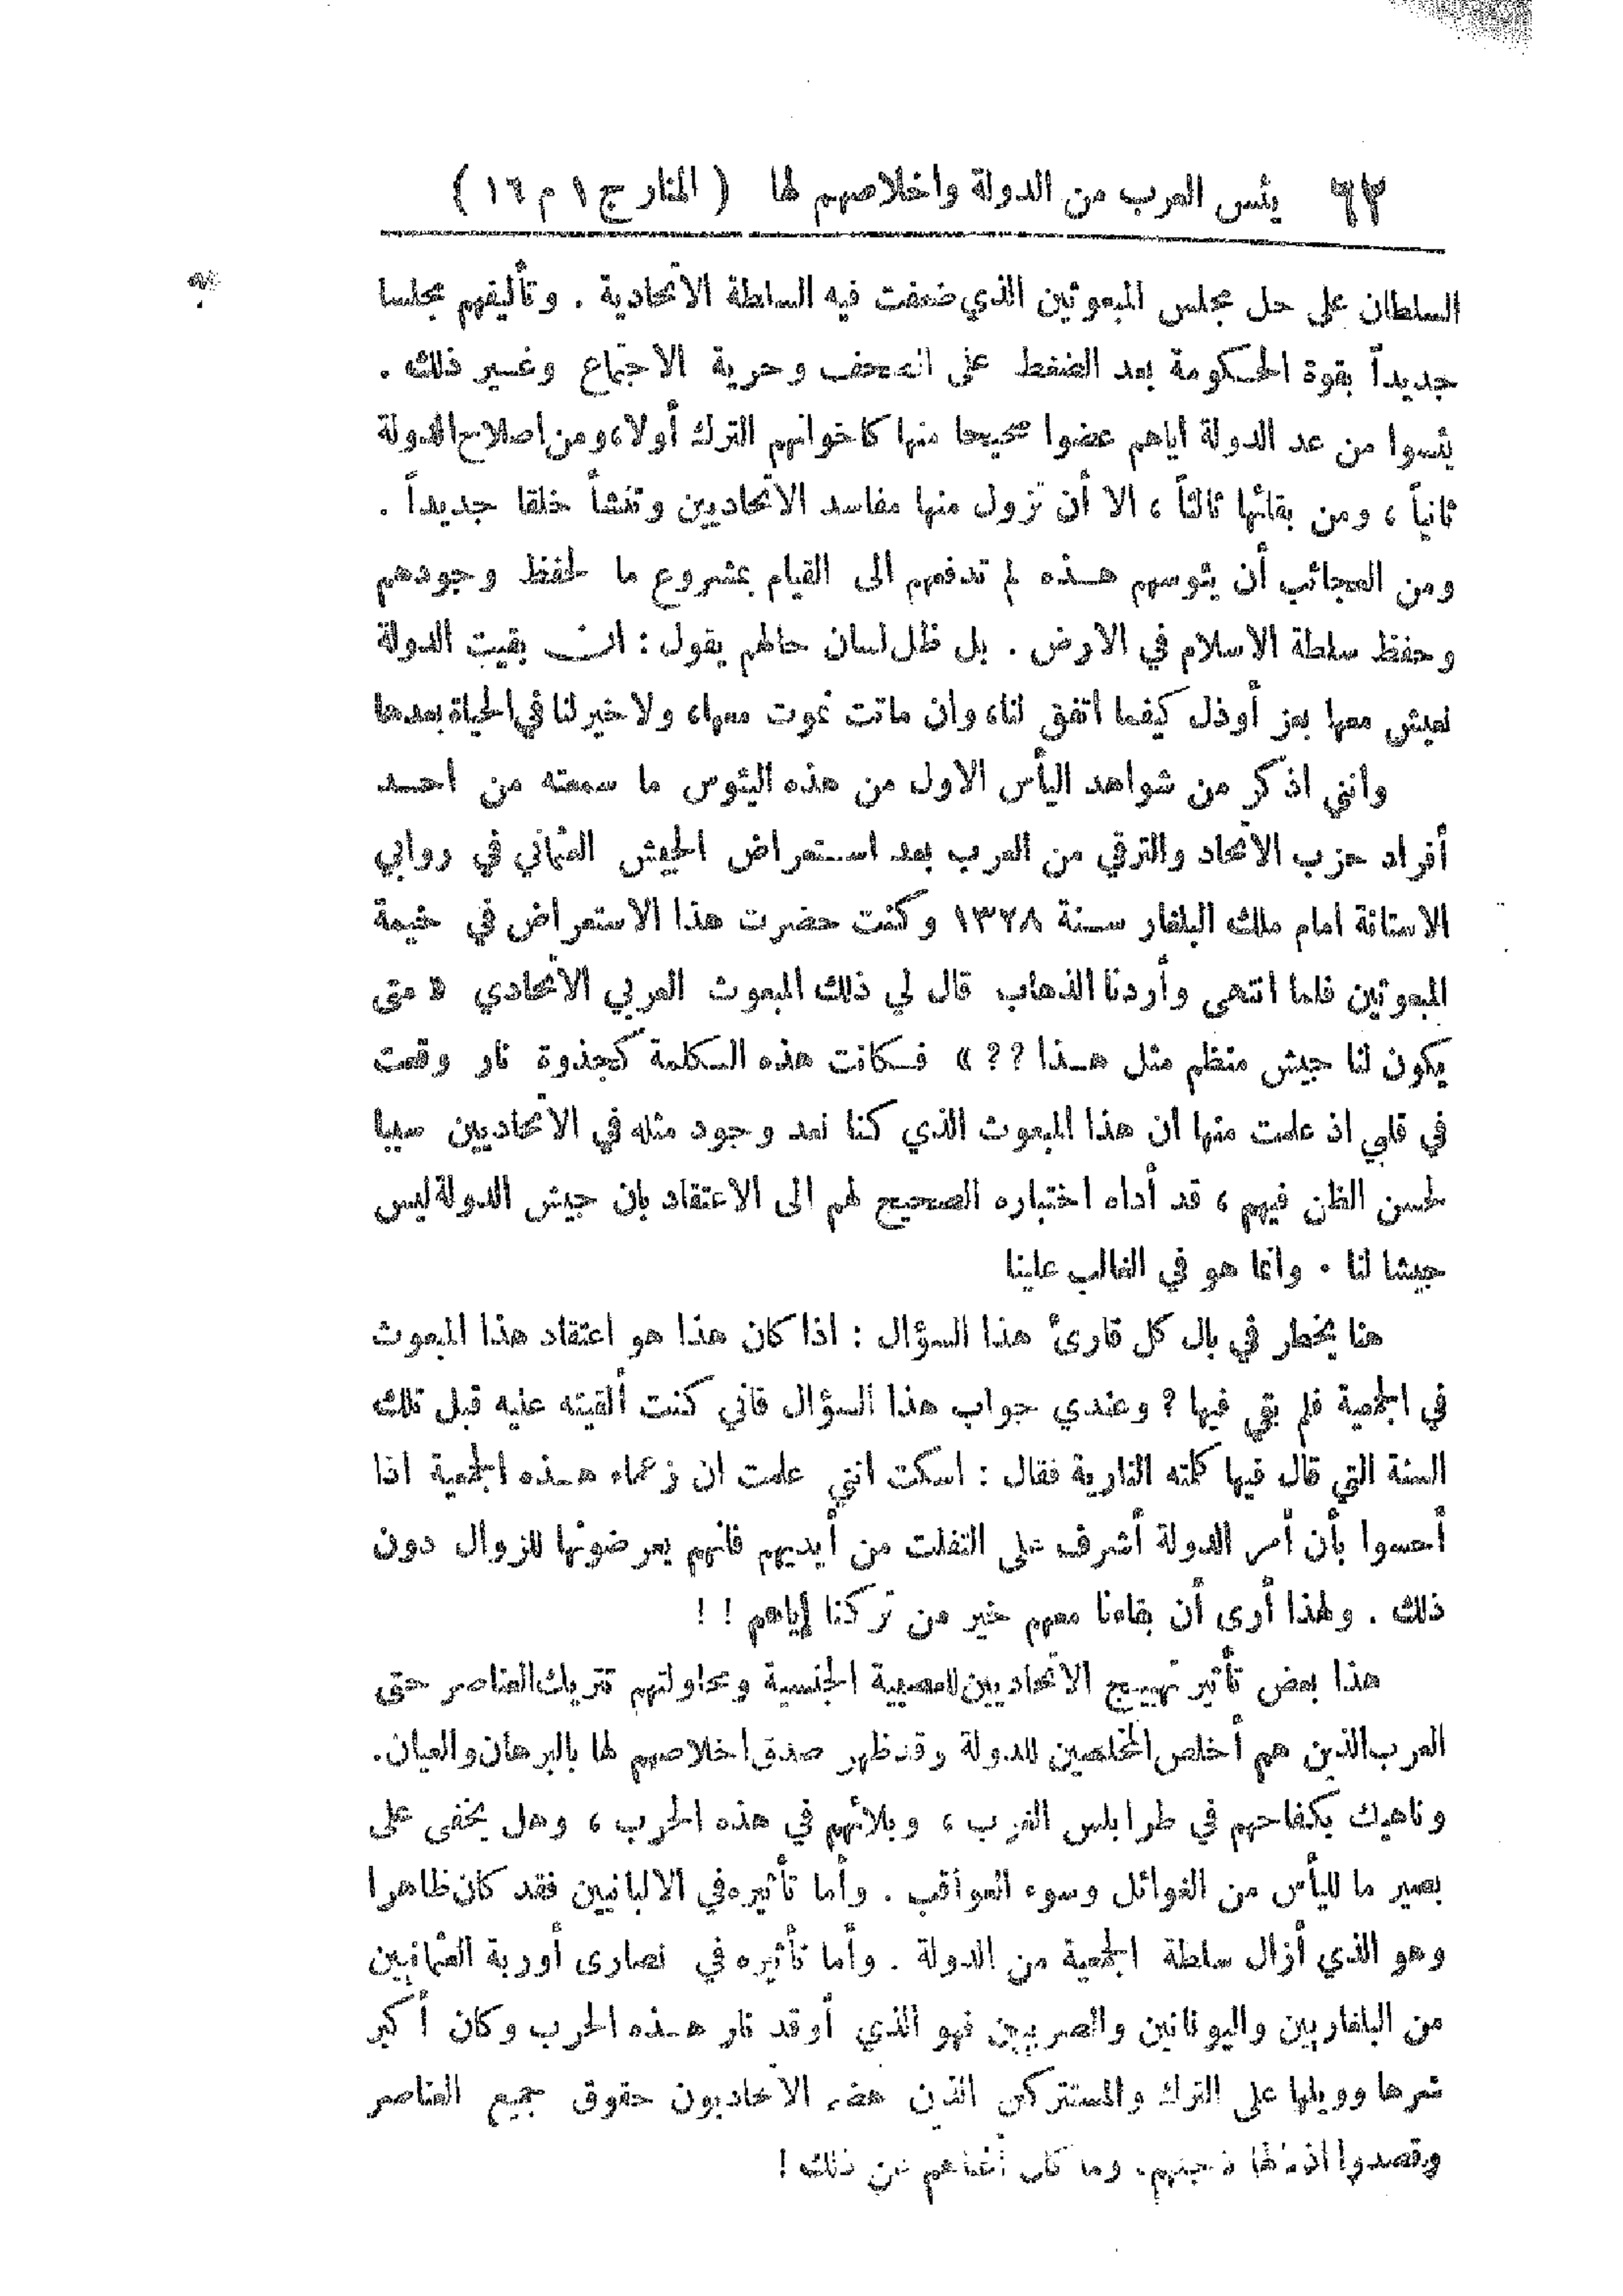 ٦٢ يئس العرب من الدولة واخلاصهم لها ( المنار ج ١ م ١٦ )
السلطان على حل مجلس المبعوثين الذي ضعفت فيه السلطة الاتحادية . وتأليفهم مجلسا
جديداً بقوة الحكومة بعد الضغط على الصحف وحرية الاجتماع وغير ذلك .
يئسوا من عد الدولة اياهم عضوا صحيحا منها كاخوانهم الترك أولا، ومن اصلاح الدولة
ثانياً ، ومن بقائها ثالثاً ، الا أن تزول منها مفاسد الاتحاديين وتنشأ خلقا جديداً .
ومن العجائب أن يئوسهم هذه لم تدفعهم الى القيام بمشروع ما لحفظ وجودهم
وحفظ سلطة الاسلام في الارض . بل ظل لسان حالهم يقول : ان بقيت الدولة
نعيش معها بعز أوذل كيفما اتفق لنا، وان ماتت نموت معها، ولا خير لنا في الحياة بعدها
وانني اذكر من شواهد اليأس الاول من هذه اليئوس ما سمعته من احد
أفراد حزب الاتحاد والترقي من العرب بعد استعراض الجيش العثماني في روابي
الاستانة امام ملك البلغار سنة ١٣٢٨ وكنت حضرت هذا الاستعراض في خيمة
المبعوثين فلما انتهى وأردنا الذهاب قال لي ذلك المبعوث العربي الاتحادي « متى
يكون لنا جيش منظم مثل هذا ؟؟ » فكانت هذه الكلمة كجذوة نار وقعت
في قلبي اذ علمت منها ان هذا المبعوث الذي كنا نعد وجود مثله في الاتحاديين سببا
لحسن الظن فيهم ، قد أداه اختباره الصحيح لهم الى الاعتقاد بان جيش الدولة ليس
جيشا لنا . وانما هو في الغالب علينا
هنا يخطر في بال كل قارئ هذا السؤال : اذا كان هذا هو اعتقاد هذا المبعوث
في الجمعية فلم بقي فيها ؟ وعندي جواب هذا السؤال فاني كنت ألقيته عليه قبل تلك
السنة التي قال فيها كلمته النارية فقال : اسكت انني علمت ان زعماء هذه الجمعية اذا
أحسوا بأن أمر الدولة أشرف على التفلت من أيديهم فانهم يعرضونها للزوال دون
ذلك . ولهذا أرى أن بقاءنا معهم خير من تركنا إياهم ! !
هذا بعض تأثير تهييج الاتحاديين للعصبية الجنسية ومحاولتهم تتريك العناصر حتى
العرب الذين هم أخلص المخلصين للدولة وقد ظهر صدق اخلاصهم لها بالبرهان والعيان.
وناهيك بكفاحهم في طرابلس الغرب ، وبلائهم في هذه الحرب ، وهل يخفى على
بصير ما لليأس من الغوائل وسوء العواقب . وأما تأثيره في الالبانيين فقد كان ظاهرا
وهو الذي أزال سلطة الجمعية من الدولة . وأما تأثيره في نصارى أوربة العثمانيين
من البلغاريين واليونانين والصربيين فهو الذي أوقد نار هذه الحرب وكان أكبر
شرها وويلها على الترك والمستتركين الذين هضم الاتحاديون حقوق جميع العناصر
وقصدوا وما كان أغناهم عن ذلك !